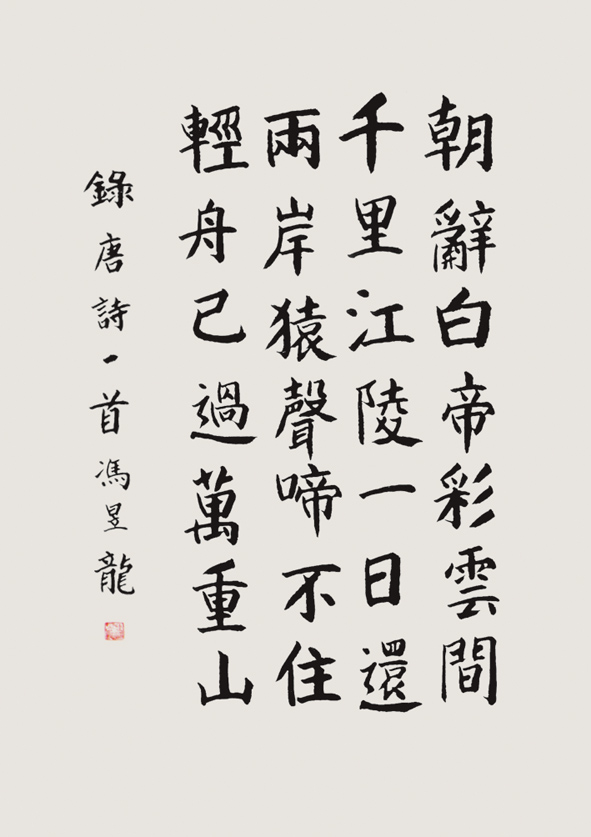 朝辭白帝彩雲間
千里江陵一日還
兩岸猿聲啼不住
輕舟已過萬重山
錄唐詩一首馮昱龍